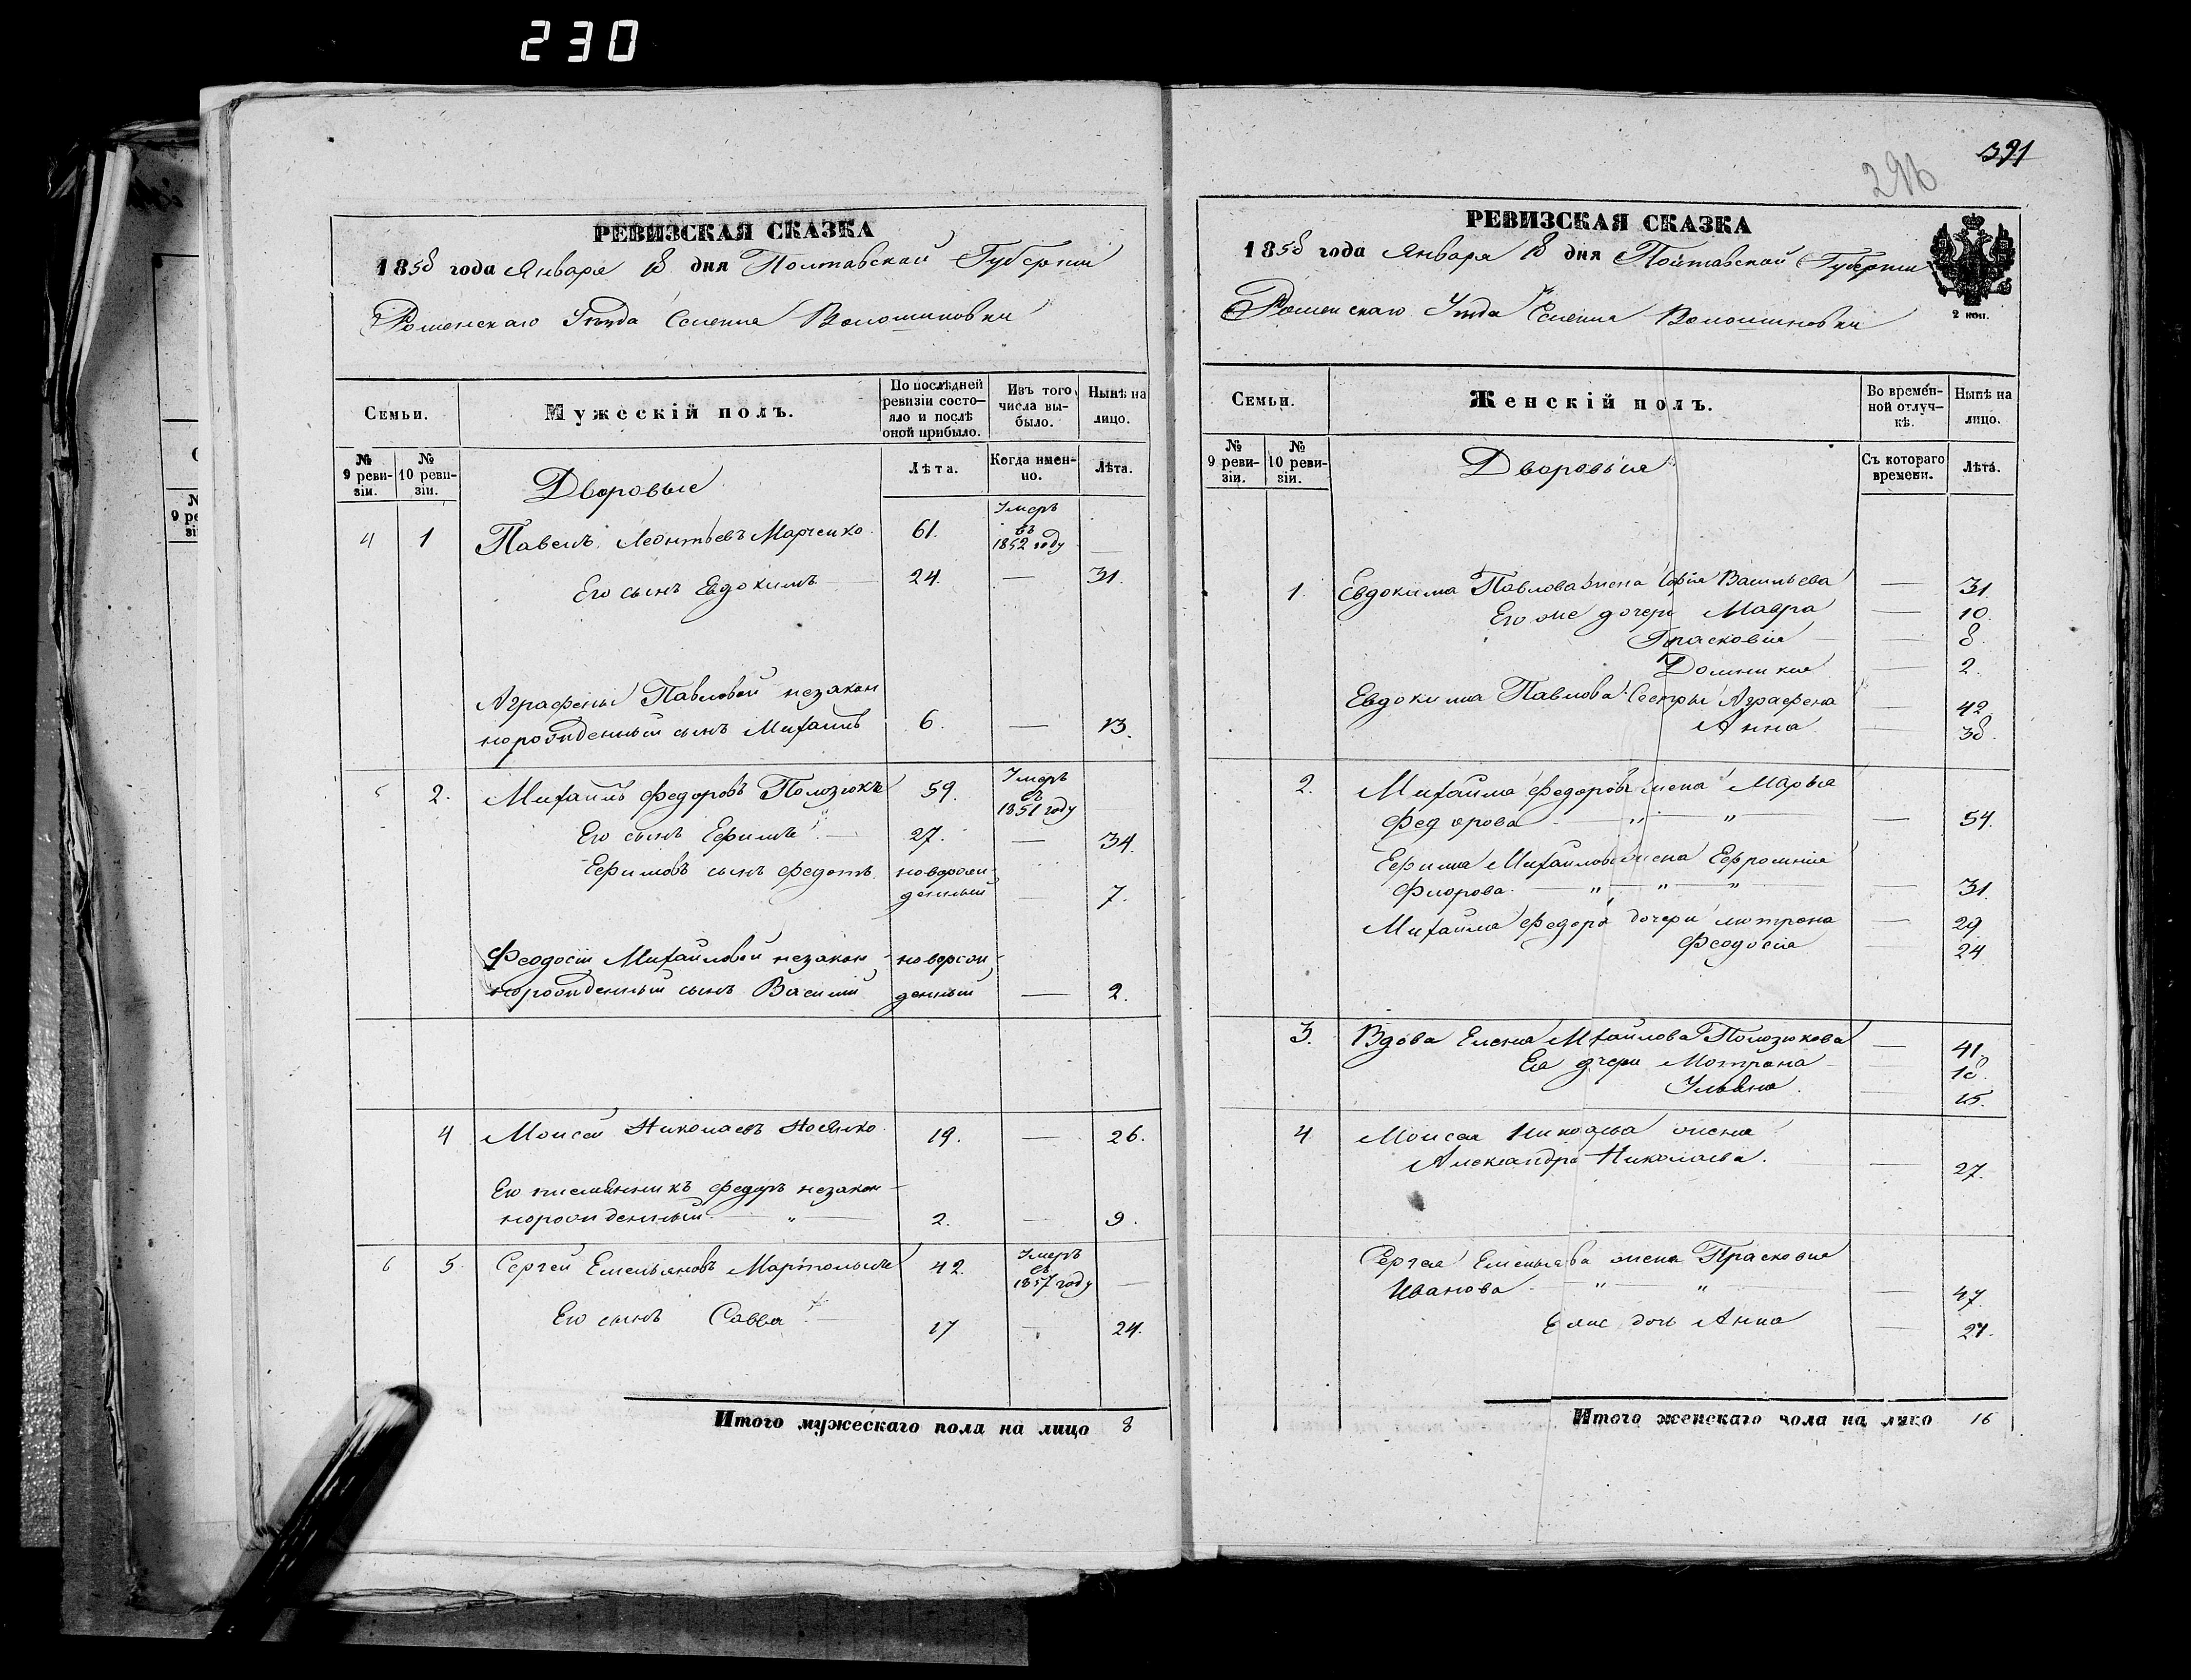 230
РЕВИЗСКАЯ СКАЗКА
1858 года Января 18 дня Полтавской Губернии
Роменскаго Уѣзда Селенія Волошиновки
Семьи.
Мужескій полъ.
По послѣдней ревизіи состо-
яло и послѣ
оной прибыло.
Изъ того
числа вы-
было.
Нынѣ на
лицо.
№
9 реви-
зіи.
№
10 реви-
зіи.
Дворовые
Лѣта.
Когда имен-
но.
Лѣта.
4 1 Павелъ Леонтьевъ Марченко 61. Умеръ въ 1852 году —
Его сынъ Евдокимъ — 24. — 31.
Аграфены Павловой незакон
норожденный сынъ Михаилъ 6. — 13.
5 2. Михаилъ Федоровъ Полозюкъ 59. Умеръ въ 1851 году
Его сынъ Ефимъ — 27. — 34.
Ефимовъ сынъ Федотъ новорож-
денный — 7.
Феодосіи Михайловой незакон- новорож-
норожденный сынъ Василій денный — 2.
4 Моисей Николаевъ Носенко 19. — 26.
Его племянникъ Федоръ незакон-
норожденный — „ — 2. — 9.
6 5. Сергей Емельяновъ 42. Умеръ въ 1857 году —
Его сынъ Савва — 17 — 24.
Итого мужескаго пола на лицо 8
391
296
РЕВИЗСКАЯ СКАЗКА
1858 года Января 18 дня Полтавской Губернии
Роменскаго Уѣзда Селенія Волошиновки
2 коп.
Семьи.
Женскій полъ.
Во времен-
ной отлуч-
кѣ.
Нынѣ на
лицо.
№
9 реви-
зіи.
№
10 реви-
зіи.
Дворовые
Съ котораго
времени.
Лѣта.
1. Евдокима Павлова жена Софія Васильева — 31.
Его же дочери Мавра — 10.
Прасковія — 8
Домникія — 2.
Евдокима Павлова Сестры Аграфена — 42.
Анна — 38.
2. Михаила Федорова жена Марья
Федорова — „ — „ — 54.
Ефима Михайлова жена Ефросинія
Фиорова — „ — „ — „ — 31.
Михаила Федора дочери Мотрона — 29
Феодосія — 24
3. Вдова Елена Михайлова Полозюкова — 41.
Ея дчери Мотрона — 18.
Ульяна. — 15.
4 Моисея Николаева жена
Александра Николаева. — 27.
Сергея Емельянова жена Прасковия
Иванова — „ „ — 47.
Ея же дочь Анна — 21.
Итого женскаго пола на лицо 16